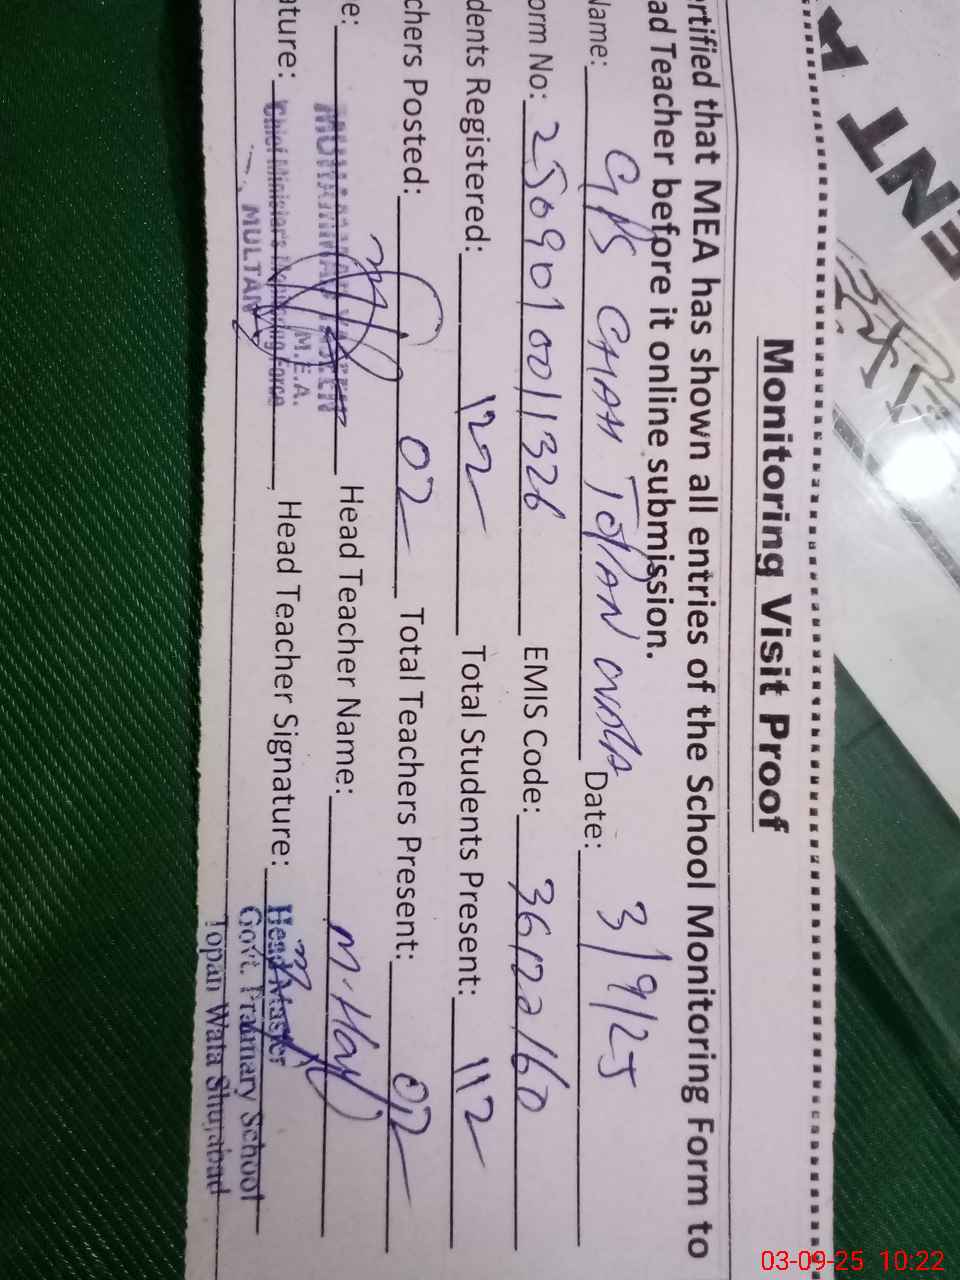 Monitoring Visit Proof
ertified that MEA has shown all entries of the School Monitoring Form to
ad Teacher before it online submission.
Name: G/PS CHAH TOPAN WALA Date: 3/9/25
orm No: 2509010011326 EMIS Code: 36122160
dents Registered: 122 Total Students Present: 112
chers Posted: 02 Total Teachers Present: 02
e: MUHAMMAD YASEEN Head Teacher Name:
M.E.A.
ature: Chief Minister's Monitoring Force Head Teacher Signature: Head Master
MULTAN
Govt. Primary School
Topan Wala Shujabad
ENT
A
03-09-25 10:22